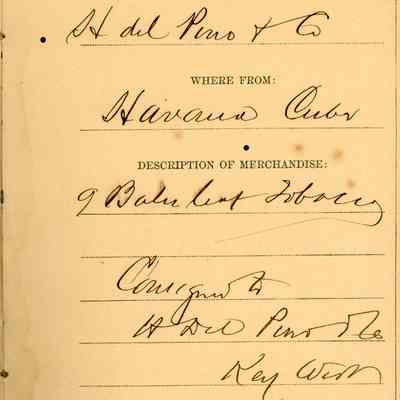 H del Pino & Co
WHERE FROM:
Havana Cuba
DESCRIPTION OF MERCHANDISE:
9 Bales leaf Tobacco
Consigned to
H Del Pino & Co
Key West